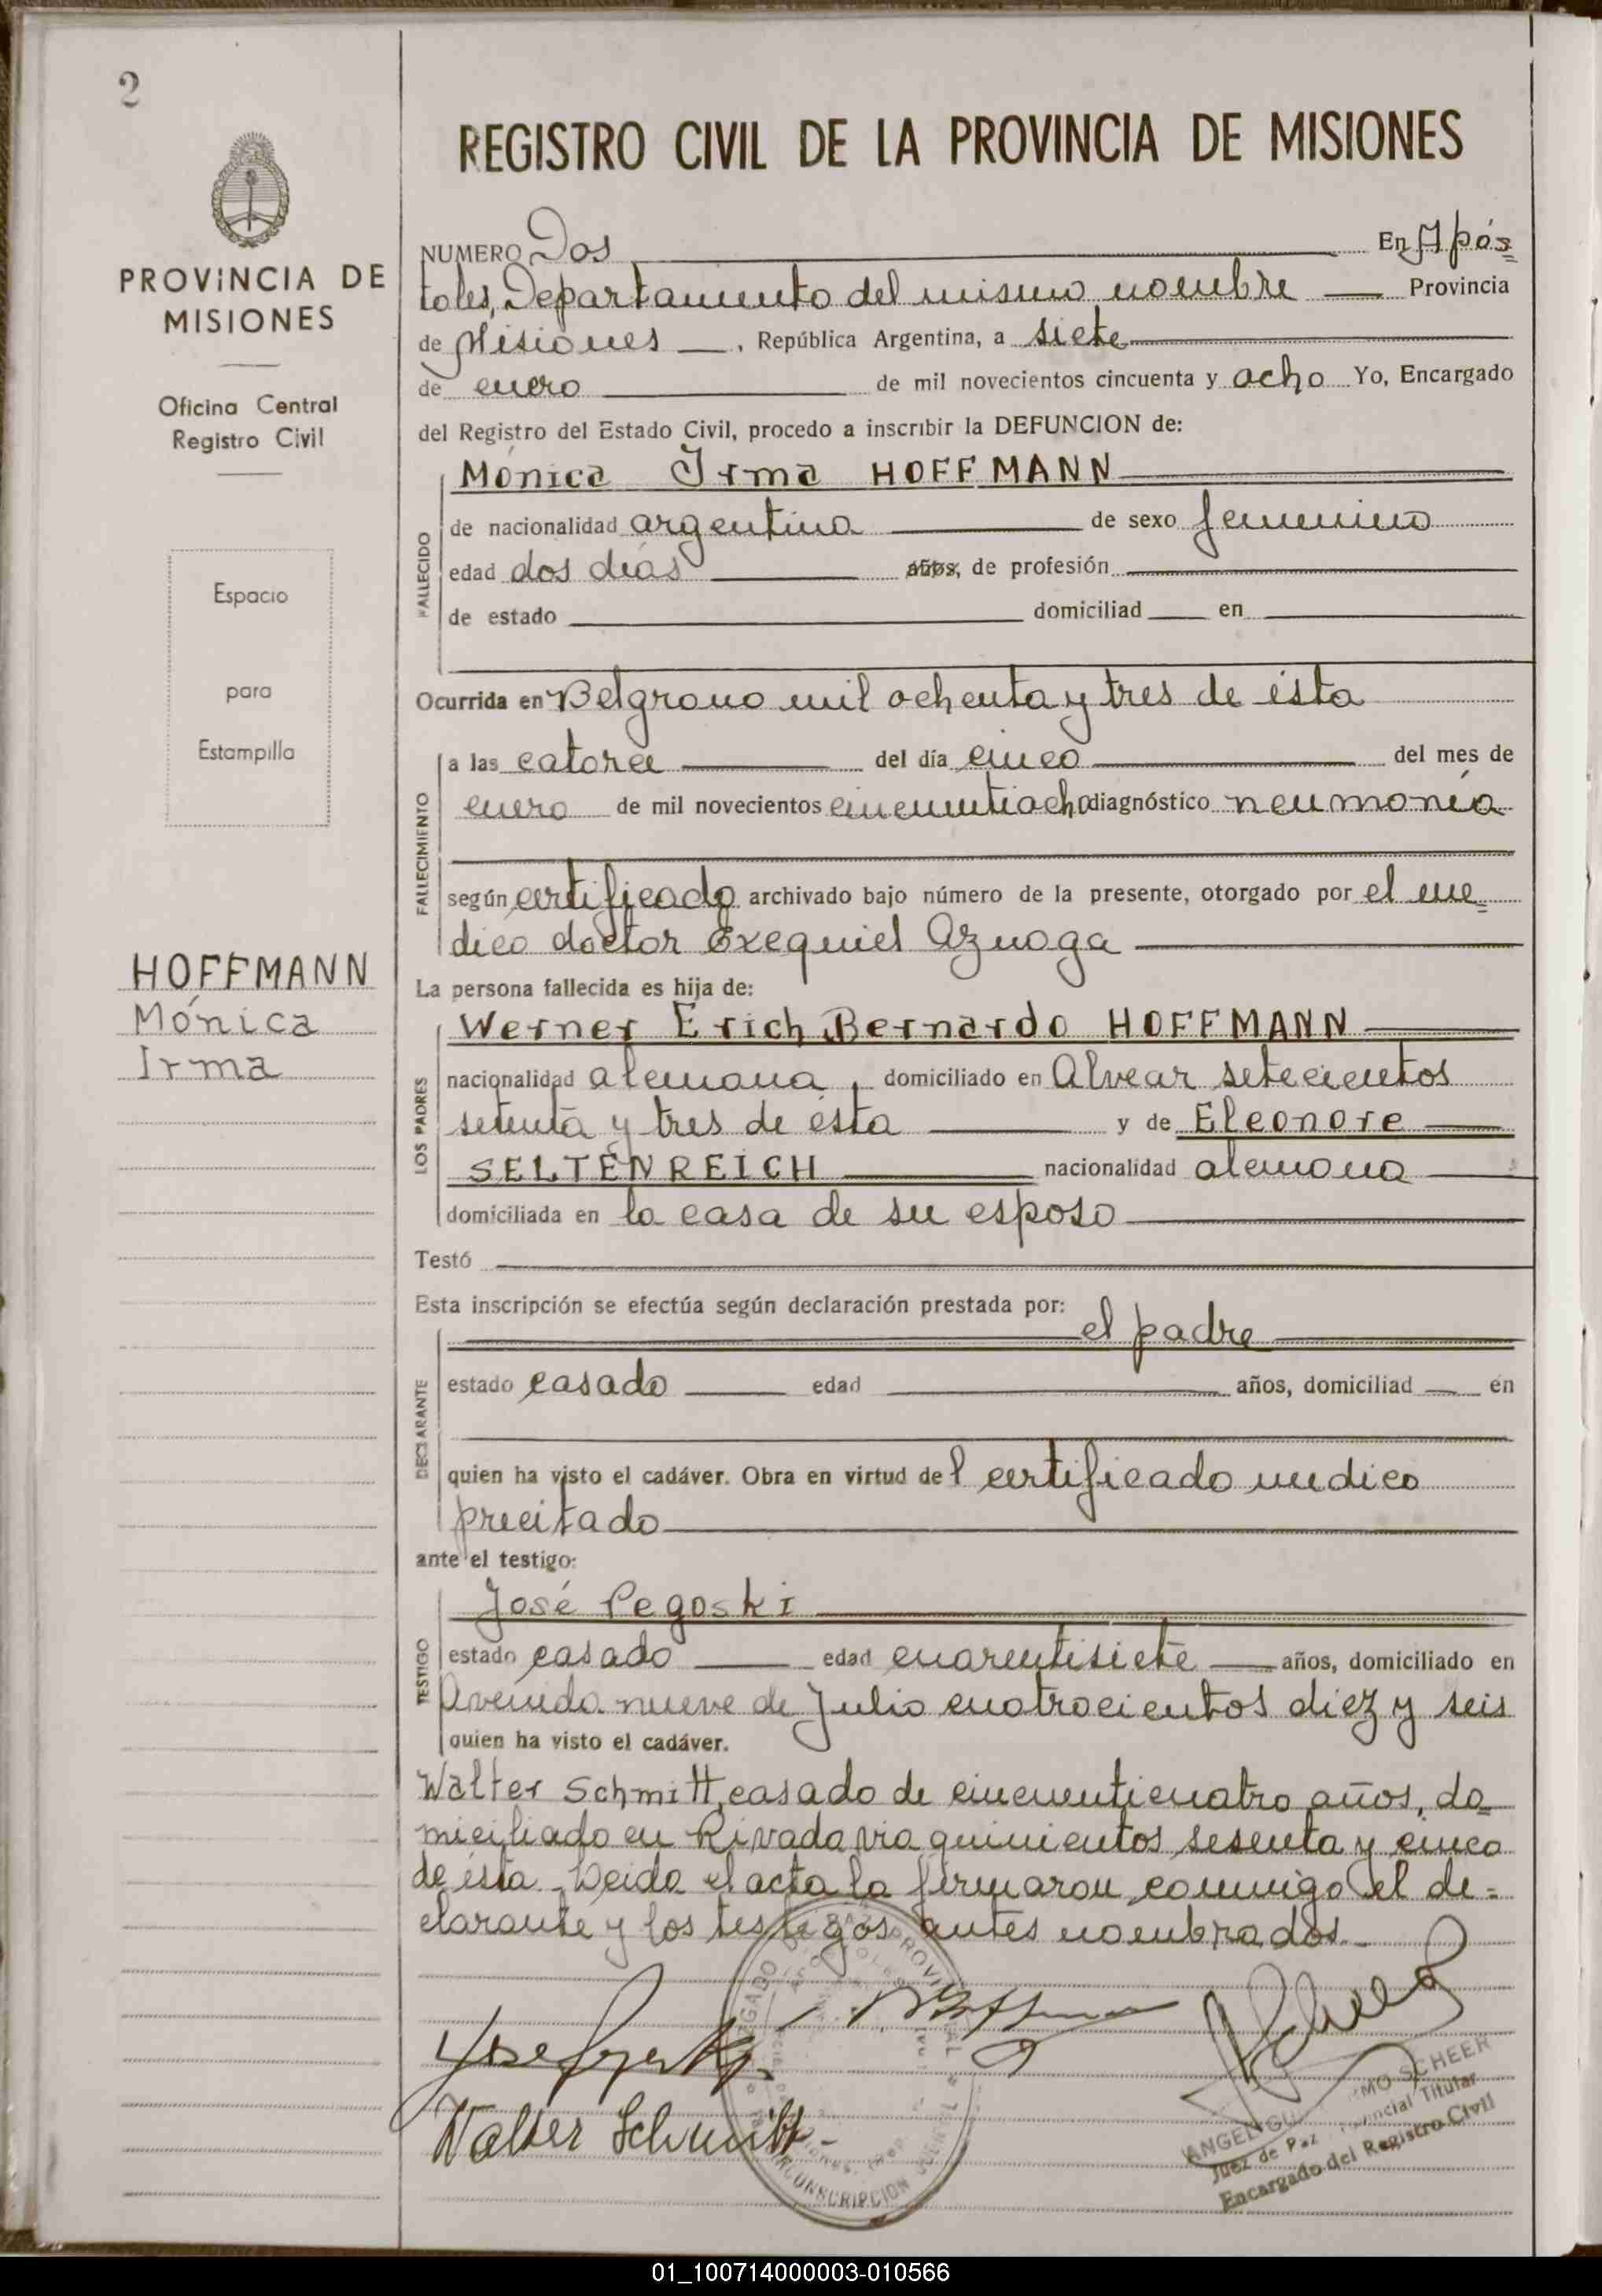 2
PROVINCIA DE
MISIONES
Oficina Central
Registro Civil
Espacio
para
Estampilla
HOFFMANN
Mónica
Irma
REGISTRO CIVIL DE LA PROVINCIA DE MISIONES
NUMERO Dos En Após=
toles, Departamento del mismo nombre Provincia
de Misiones, República Argentina, a siete
de enero de mil novecientos cincuenta y ocho Yo, Encargado
del Registro del Estado Civil, procedo a inscribir la DEFUNCION de:
Mónica Irma HOFFMANN
de nacionalidad argentina de sexo femenino
FALLECIDO
edad dos días años, de profesión
de estado domiciliad en
Ocurrida en Belgrano mil ochenta y tres de ésta
a las catorce del día cinco del mes de
enero de mil novecientos cincuentiocho diagnóstico neumonía
FALLECIMIENTO
según certificado archivado bajo número de la presente, otorgado por el me=
dico doctor Exequiel Aznoga
La persona fallecida es hija de:
Werner Erich Bernardo HOFFMANN
nacionalidad alemana, domiciliado en Alvear setecientos
LOS PADRES
setenta y tres de ésta y de Eleonore
SELTENREICH nacionalidad alemana
domiciliada en la casa de su esposo
Testó
Esta inscripción se efectúa según declaración prestada por:
el padre
estado casado edad años, domiciliad en
DECLARANTE
quien ha visto el cadáver. Obra en virtud del certificado medico
precitado
ante el testigo:
José Pegoski
TESTIGO
estado casado edad cuarentisiete años, domiciliado en
Avenida nueve de Julio cuatrocientos diez y seis
quien ha visto el cadáver.
Walter Schmitt, casado de cincuenticuatro años, do=
miciliado en Rivadavia quinientos sesenta y cinco
de ésta. Leida el acta la firmaron conmigo el de=
clarante y los testigos antes nombrados.
Walter Schmitt
MO SCHEER
Juez de Paz Provincial Titular
Encargado del Registro Civil
CIRCUNSCRIPCION
01_100714000003-010566